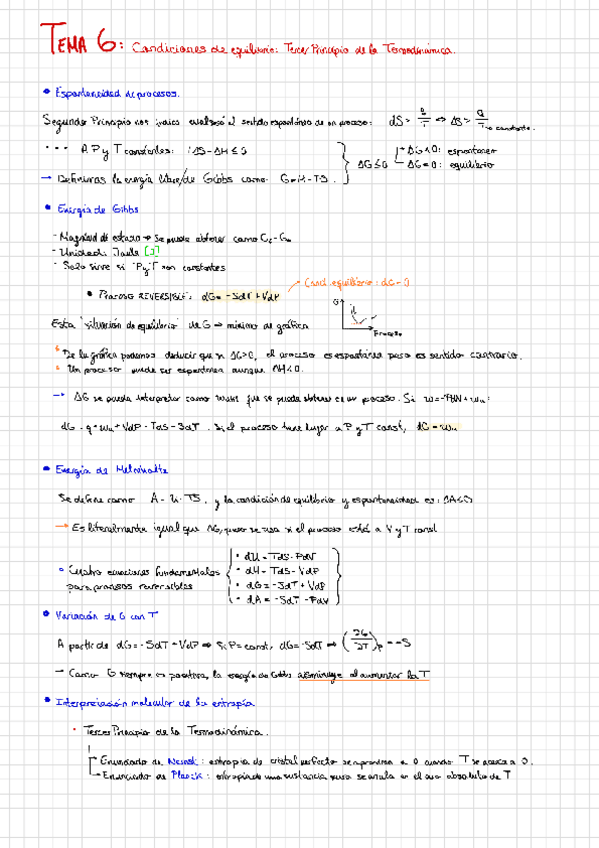 TEMA 6: Condiciones de equilibrio: Tercer Principio de la Termodinámica.
• Espontaneidad de procesos.
Segundo Principio nos indica el sentido espontáneo de un proceso: dS > q/T ⇔ ΔS > Q/T → T constante.
A P y T constantes: TΔS - ΔH ≤ 0
ΔG ≤ 0
ΔG < 0: espontáneo
ΔG = 0: equilibrio
→ Definimos la energía libre/de Gibbs como: G = H - TS.
• Energía de Gibbs
- Magnitud de estado → Se puede obtener como
- Unidad: Julio [J]
- Solo sirve si P y T son constantes
Cond. equilibrio: dG = 0
• Proceso REVERSIBLE: dG = -SdT + VdP
G
Proceso
Esta "situación de equilibrio" de G → mínimo de gráfica
De la gráfica podemos deducir que si ΔG>0, el proceso es espontáneo pero en sentido contrario.
Un proceso puede ser espontáneo aunque ΔH<0.
→ ΔG se puede interpretar como que se puede obtener en un proceso. Si w = -PdV + wu:
dG = q + wu + VdP - TdS - SdT. Si el proceso tiene lugar a P y T const, dG = wu
• Energía de Helmholtz
Se define como A = U - TS, y la condición de equilibrio y espontaneidad es: ΔA ≤ 0
→ Es literalmente igual que ΔG, pero se usa si el proceso está a V y T const
Cuatro ecuaciones fundamentales
para procesos reversibles
• dU = TdS - PdV
• dH = TdS - VdP
• dG = -SdT + VdP
• dA = -SdT - PdV
• Variación de G con T
A partir de dG = -SdT + VdP ⇒ Si P = const, dG = -SdT ⇒ (∂G/∂T)P = -S
→ Como S siempre es positiva, la energía de Gibbs disminuye al aumentar la T
• Interpretación molecular de la entropía
• Tercer Principio de la Termodinámica.
Enunciado de Nernst: entropía de cristal perfecto se aproxima a 0 cuando T se acerca a 0.
Enunciado de Planck: entropía de una sustancia pura se anula en el cero absoluto de T